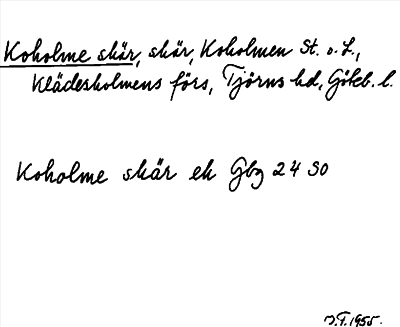 Koholme skär, skär, Koholmen St. o. L.,
Klädesholmens förs, Tjörns hd, Göteb. l.
Koholme skär ek Gbg 24 SO
J.F. 1955.